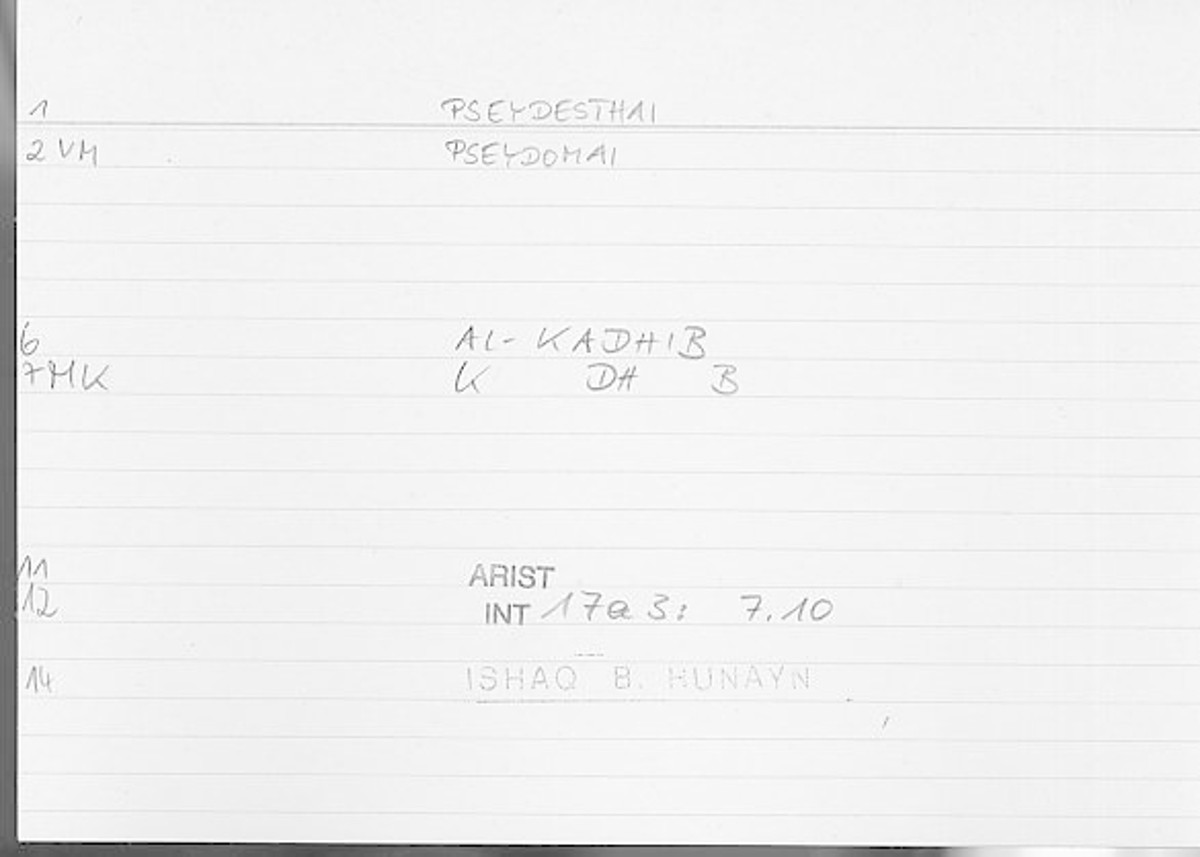 1 PSEYDESTHAI
2 VM PSEYDOMAI
6 AL-KADHIB
7 MK K DH B
11 ARIST
12 INT 17a3: 7.10
14 ISHAQ B. HUNAYN